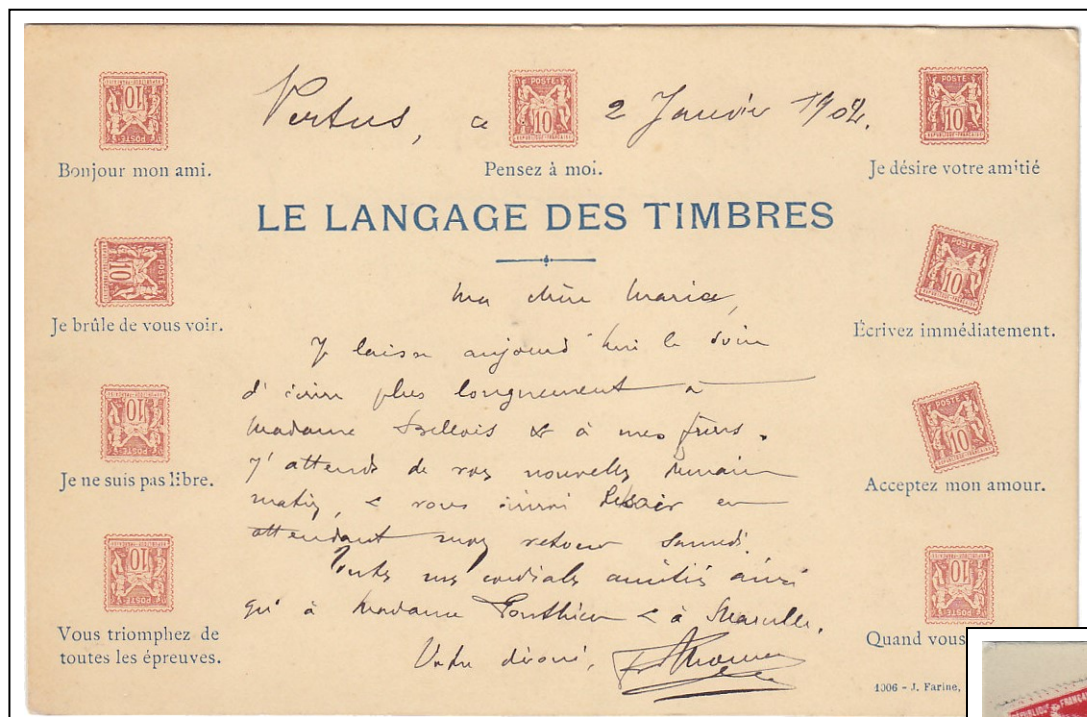 Vertus, a 2 Janvier 1902.
Bonjour mon ami.
Pensez à moi.
Je désire votre amitié
LE LANGAGE DES TIMBRES
Je brûle de vous voir.
Écrivez immédiatement.
Je ne suis pas libre.
Acceptez mon amour.
Vous triomphez de
toutes les épreuves.
Quand vous
Ma chère Maria,
Je laisse aujourd'hui le soin
d'écrire plus longuement à
Madame & à mes frères.
J'attends de vos nouvelles demain
matin, & vous en
attendant mon retour samedi.
Toutes mes cordiales amitiés ainsi
qu'à Madame & à Marcelle.
Votre dévoué,
1006 - J. Farine,